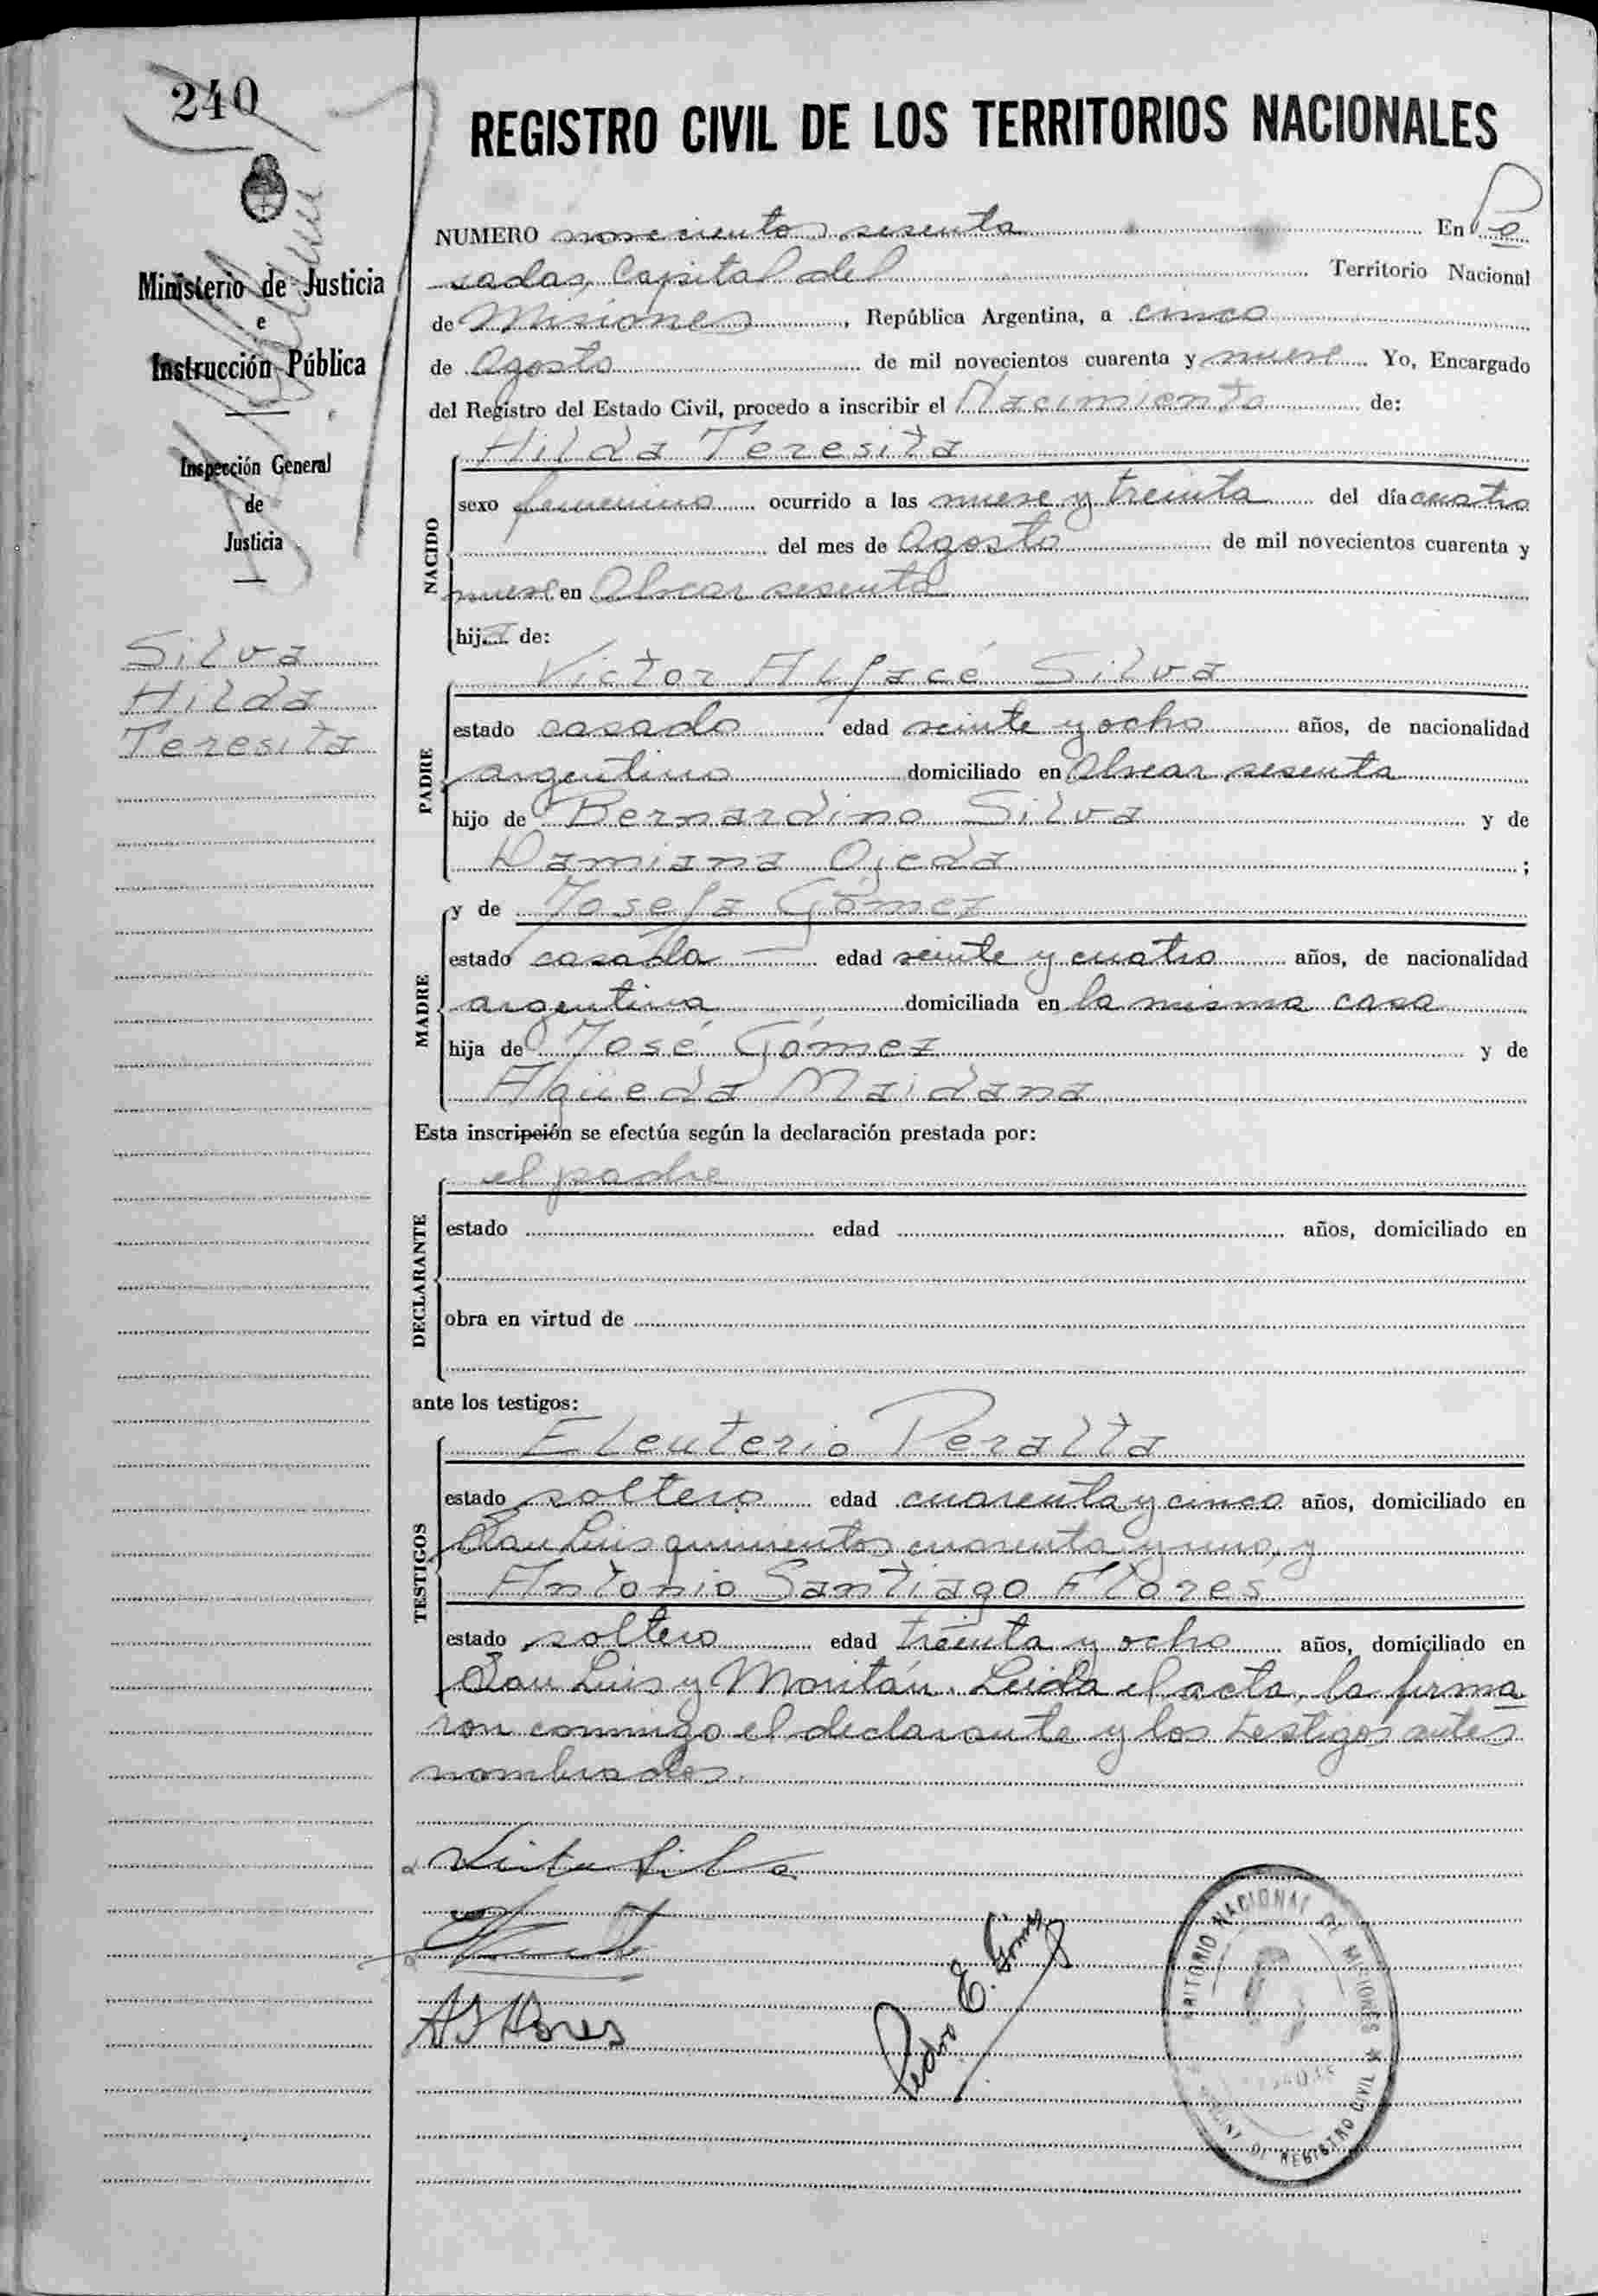 240
Ministerio de Justicia
e
Instrucción Pública
Inspección General
de
Justicia
Silva
Hilda
Teresita
REGISTRO CIVIL DE LOS TERRITORIOS NACIONALES
NUMERO novecientos sesenta En Po
sadas, Capital del Territorio Nacional
de Misiones, República Argentina, a cinco
de Agosto de mil novecientos cuarenta y nueve Yo, Encargado
del Registro del Estado Civil, procedo a inscribir el Nacimiento de:
NACIDO
Hilda Teresita
sexo femenino ocurrido a las nueve y treinta del día cuatro
del mes de Agosto de mil novecientos cuarenta y
nueve en Alvear sesenta
hija de:
PADRE
Victor Alfacé Silva
estado casado edad veinte y ocho años, de nacionalidad
argentino domiciliado en Alvear sesenta
hijo de Bernardino Silva y de
Damiana Ojeda ;
MADRE
y de Josefa Gómez
estado casada edad veinte y cuatro años, de nacionalidad
argentina domiciliada en la misma casa
hija de José Gómez y de
Agüeda Maidana
Esta inscripción se efectúa según la declaración prestada por:
DECLARANTE
el padre
estado edad años, domiciliado en
obra en virtud de
ante los testigos:
TESTIGOS
Eleuterio Peralta
estado soltero edad cuarenta y cinco años, domiciliado en
San Luis quinientos cuarenta y uno, y
Antonio Santiago Flores
estado soltero edad treinta y ocho años, domiciliado en
San Luis y Moritán. Leida el acta, la firma
ron conmigo el declarante y los testigos antes
nombrados.
Victor Silva
A S Flores
Pedro E. Gómez
RITORIO NACIONAL DE MISIONES
DE REGISTRO CIVIL